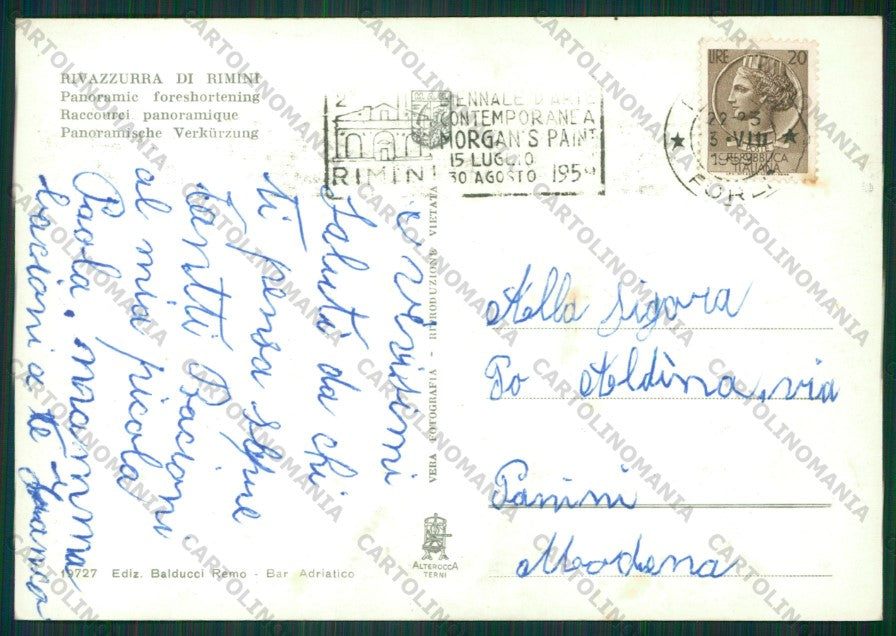 RIVAZZURRA DI RIMINI
Panoramic foreshortening
Raccourci panoramique
Panoramische Verkürzung
BIENNALE D'ARTE
CONTEMPORANEA
MORGAN'S PAINT
15 LUGLIO
30 AGOSTO 1959
RIMINI
LIRE 20
REPUBBLICA
ITALIANA
22-23
3-VIII
1959
FORLI
Saluti da chi
ti pensa sempre
tantti Bacioni
al mia picola
Paola. mamma
bacioni a te Franco
VERA FOTOGRAFIA - RIPRODUZIONE VIETATA
Alla Sigora
Po Aldina, via
Panini
Modena
19727 Ediz. Balducci Remo - Bar Adriatico
ALTEROCCA
TERNI
CARTOLINOMANIA